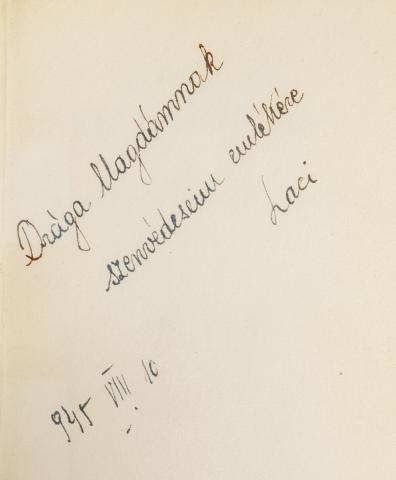 Drága Magdámnak
szenvédeseim emlékére
Laci
945 VIII 10